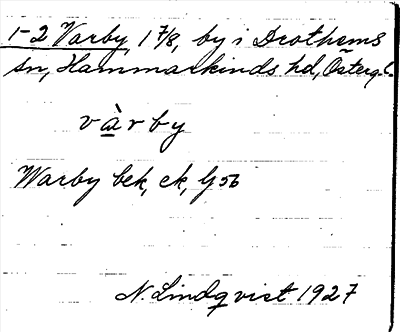 1-2 Varby, 1 7/8, by i Drothems
sn, Hammarkinds hd, Österg. l.
v à r b y
Warby bek, ek, G 56
N. Lindqvist 1927